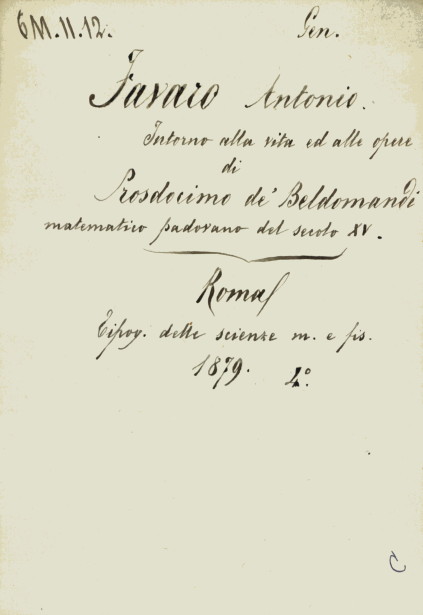 6M.II.12. Gen.
Favaro Antonio.
Intorno alla vita ed alle opere
di
Prosdocimo de' Beldomandi
matematico padovano del secolo XV.
Roma
Tipog. delle scienze m. e fis.
1879. 4º.
C